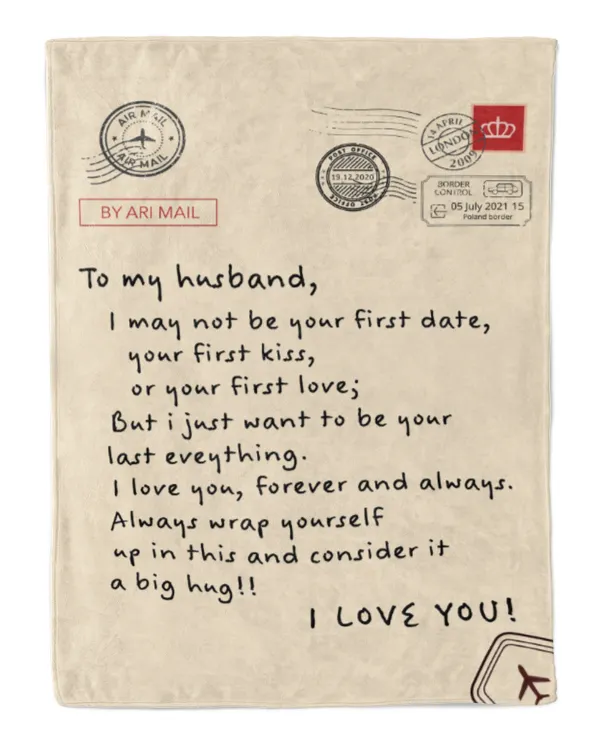 AIR MAIL
AIR MAIL
14 APRIL
LONDON
2009
POST OFFICE
19.12.2020
POST OFFICE
BORDER
CONTROL
05 July 2021 15
Poland border
BY ARI MAIL
To my husband,
I may not be your first date,
your first kiss,
or your first love;
But i just want to be your
last eveything.
I love you, forever and always.
Always wrap yourself
up in this and consider it
a big hug!!
I LOVE YOU!